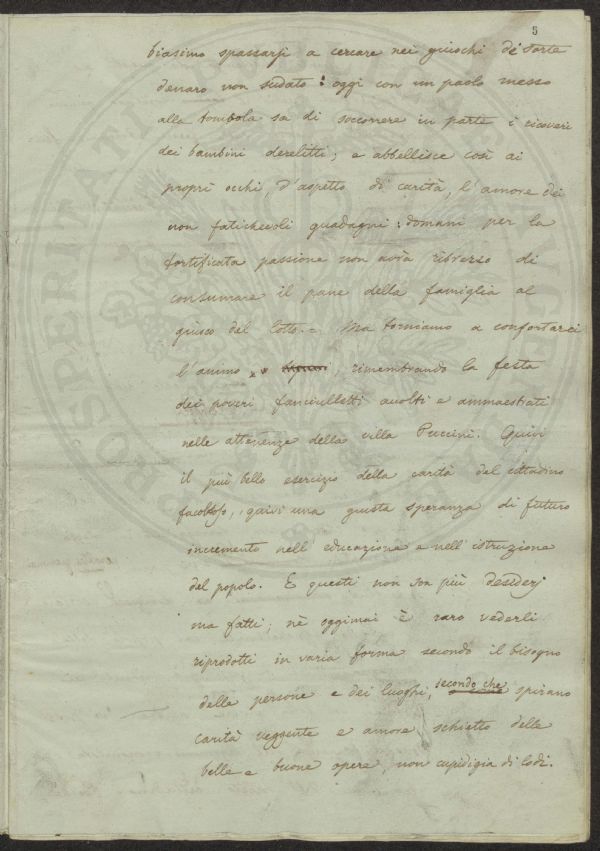 5
biasimo spassarsi a cercare nei giuochi di sorte
denaro non sudato: oggi con un paolo messo
alla tombola sa di soccorrere in parte i ricoveri
dei bambini derelitti; e abbellisce così ai
propri occhi, d'aspetto di carità, l'amore dei
non fatichevoli guadagni: domani per la
fortificata passione non avrà ribrezzo di
consumare il pane della famiglia al
giuoco del lotto. = Ma torniamo a confortarci
l'animo, rimembrando la festa
dei poveri fanciulletti accolti e ammaestrati
nelle attenenze della villa Puccini. Quivi
il più bello esercizio della carità del cittadino
facoltoso, quivi una giusta speranza di futuro
incremento nell'educazione e nell'istruzione
del popolo. E questi non son più desiderj
ma fatti; nè oggimai è raro vederli
riprodotti in varia forma secondo il bisogno
delle persone e dei luoghi, secondo che spirano
carità veggente e amore schietto delle
belle e buone opere, non cupidigia di lodi.
PROSPERITATI PUBLICAE